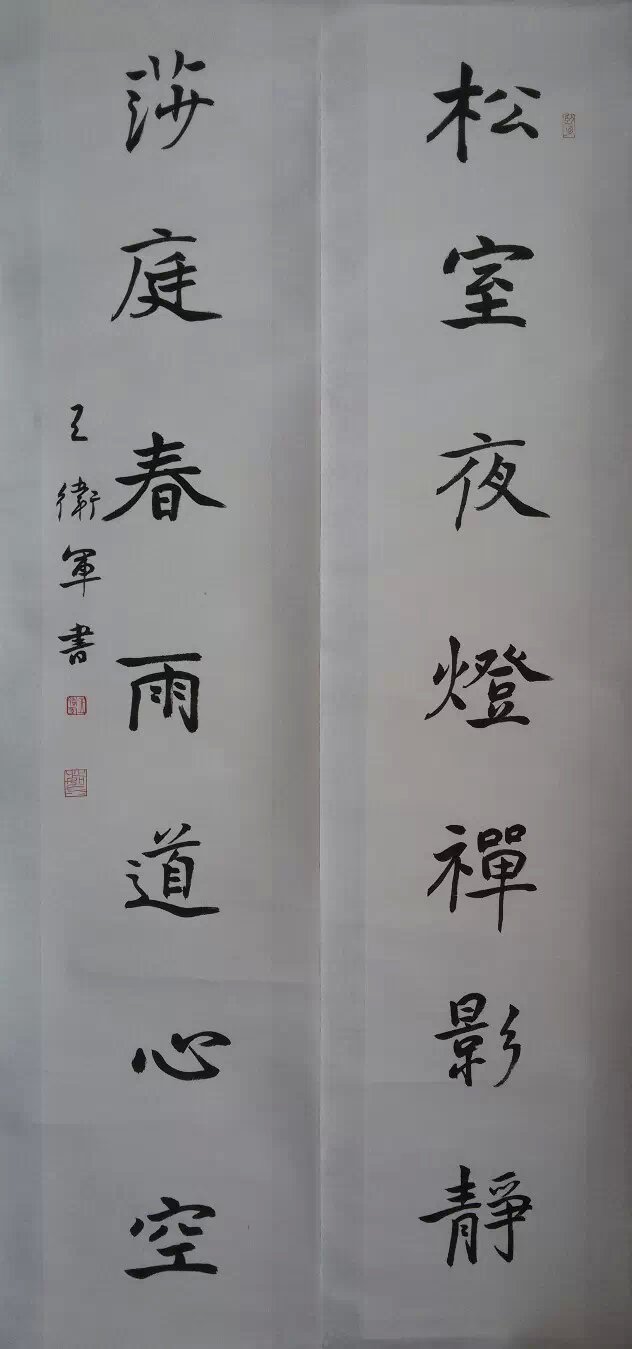 松室夜燈禪影靜
莎庭春雨道心空
王衛軍書